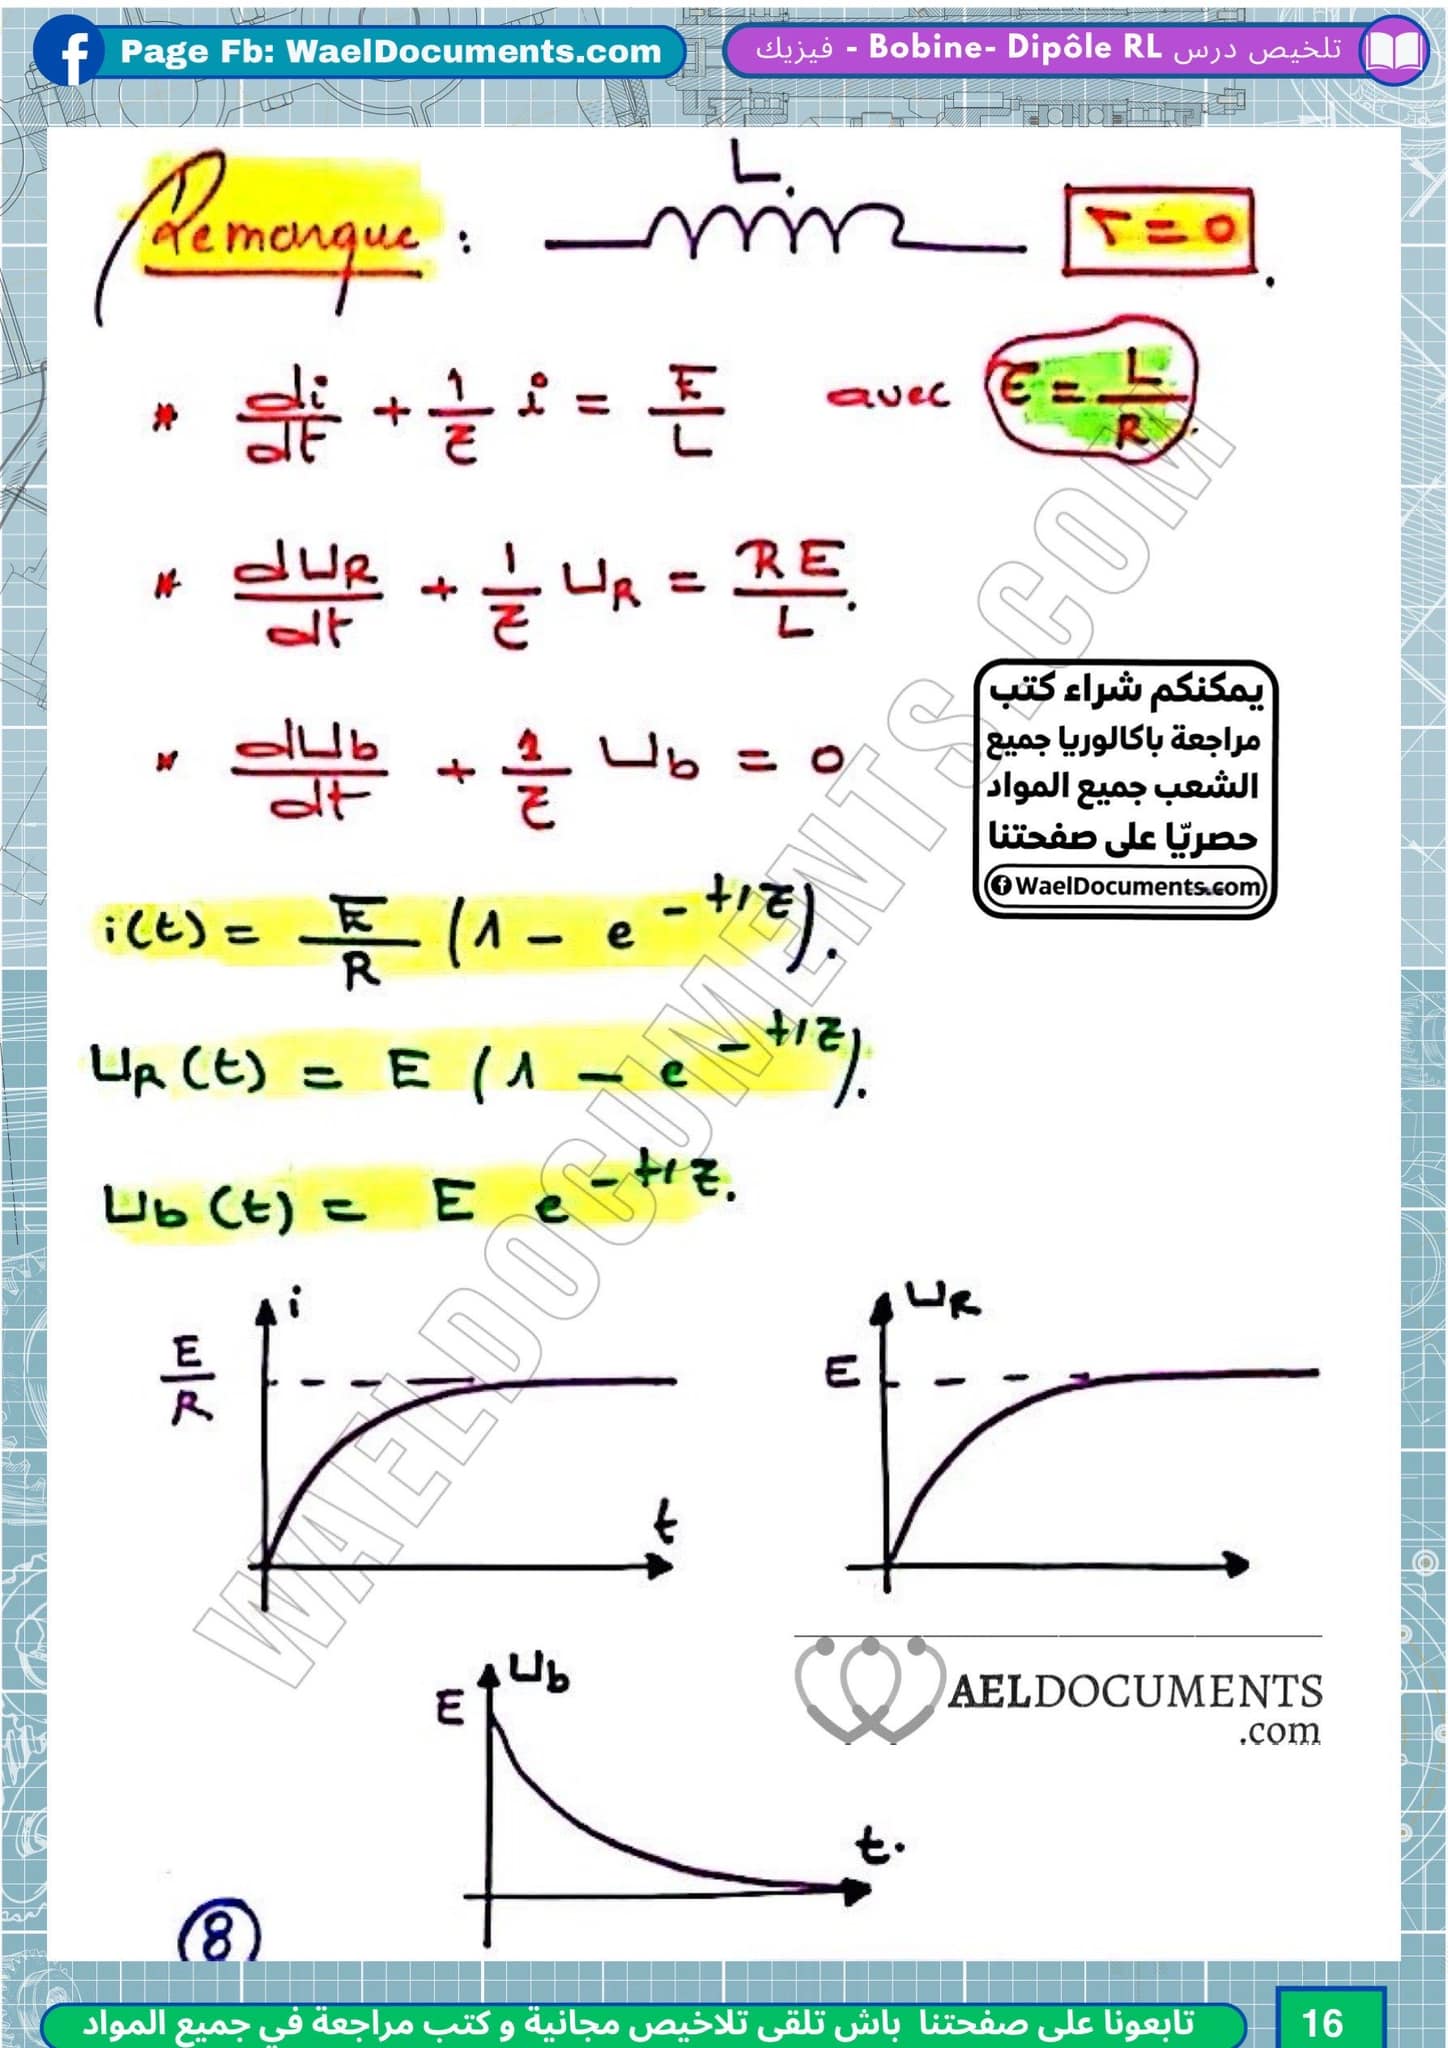 Page Fb: WaelDocuments.com
تلخيص درس Bobine- Dipôle RL - فيزيك
L.
Remarque : r = 0 .
* di/dt + 1/τ i = E/L avec τ = L/R .
* duR/dt + 1/τ uR = RE/L .
* dub/dt + 1/τ ub = 0
يمكنكم شراء كتب
مراجعة باكالوريا جميع
الشعب جميع المواد
حصريّا على صفحتنا
WaelDocuments.com
i(t) = E/R (1 - e^-t/τ).
uR(t) = E (1 - e^-t/τ).
ub(t) = E e^-t/τ.
i
E/R
t
uR
E
ub
E
t.
WAELDOCUMENTS.COM
AELDOCUMENTS
.com
8
تابعونا على صفحتنا باش تلقى تلاخيص مجانية و كتب مراجعة في جميع المواد
16